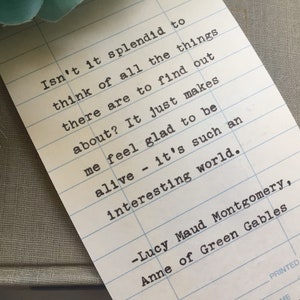 Isn't it splendid to
think of all the things
there are to find out
about? It just makes
me feel glad to be
alive - it's such an
interesting world.
-Lucy Maud Montgomery,
Anne of Green Gables
PRINTED